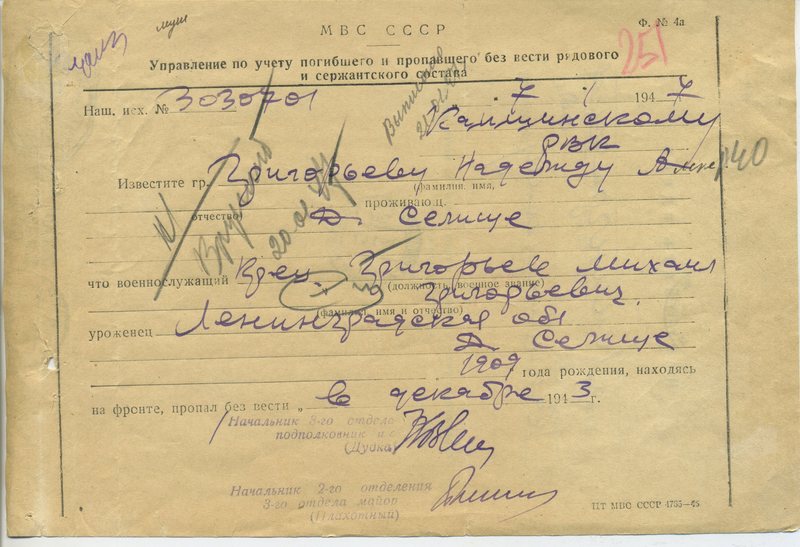 муж
МВС СССР
Ф. № 4а
251
Управление по учету погибшего и пропавшего без вести рядового
и сержантского состава
Наш. исх. № 3030701
7 1 1947
РВК
Известите гр. Григорьеву Надежду
140
(фамилия, имя,
отчество) проживающ.
Д. Селище
Вручено
20.01.47
Выписано
что военнослужащий Григорьев Михаил
(должность, военное звание)
Григорьевич
(фамилия, имя и отчество)
уроженец Ленинградская обл
Д Селище
1909 года рождения, находясь
на фронте, пропал без вести „ в декабре 1943 г.
Начальник 3-го отдела
подполковник и/с
(Дудка)
Начальник 2-го отделения
3-го отдела майор
(Плахотный)
ЦТ МВС СССР 4735—46